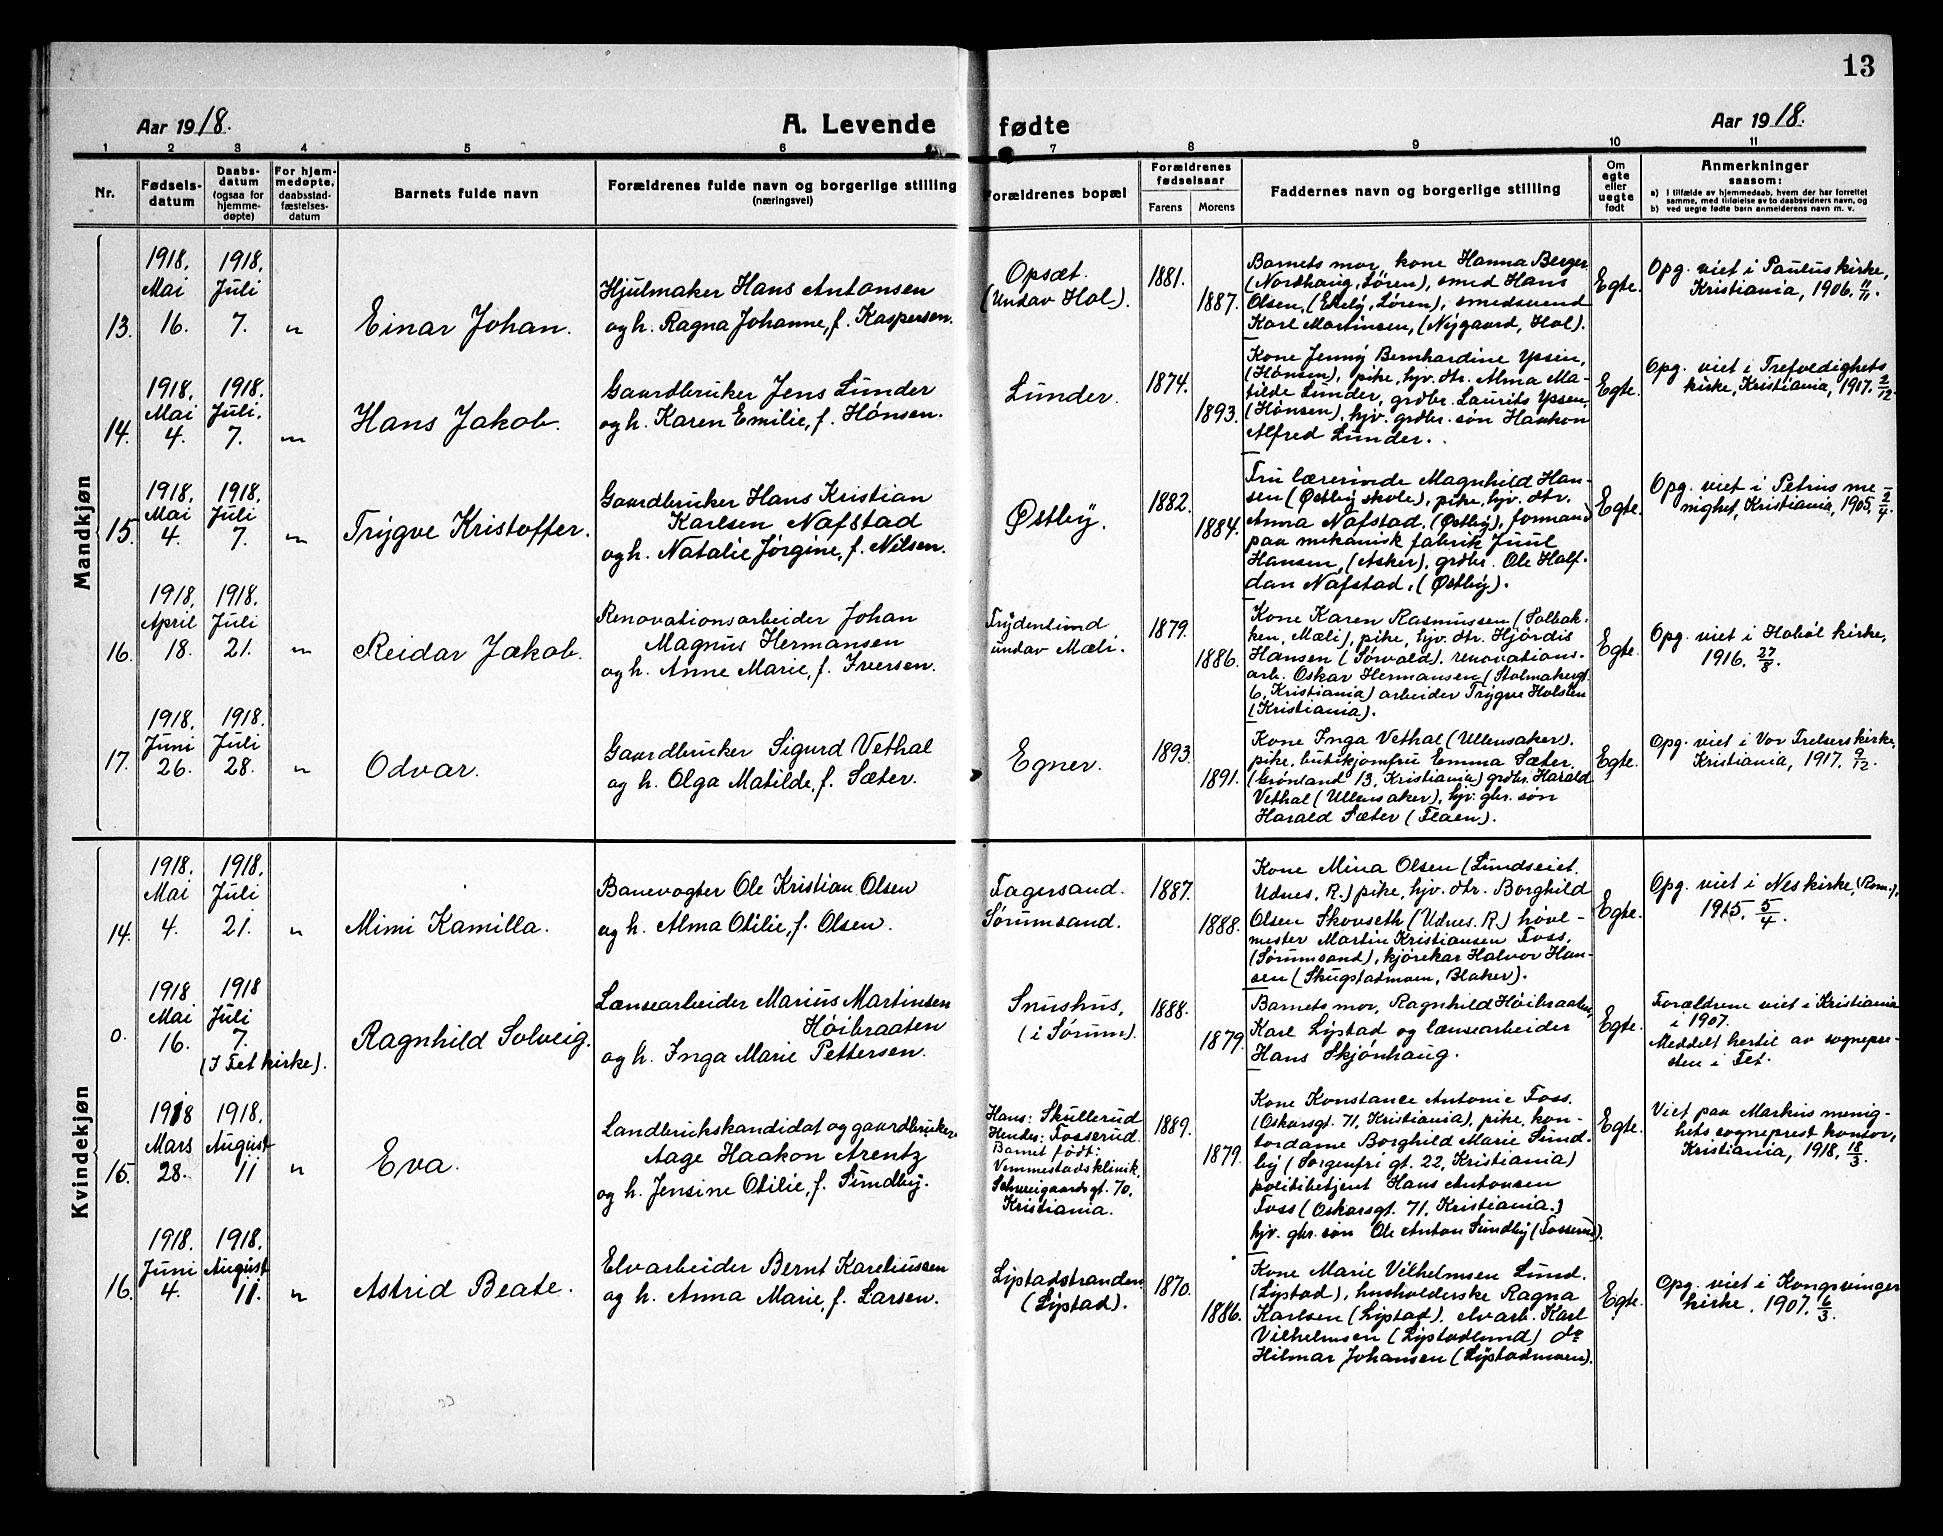 13
Aar 1918.
A. Levende fødte
Aar 1918.
1 2 3 4 5 6 7 8 9 10 11
Nr.
Fødsels-
datum
Daabs-
datum
(ogsaa for
hjemme-
døpte)
For hjem-
medøpte,
daabsstad-
fæstelses-
datum
Barnets fulde navn
Forældrenes fulde navn og borgerlige stilling
(næringsvei)
Forældrenes bopæl
Forældrenes
fødselsaar
Farens Morens
Faddernes navn og borgerlige stilling
Om
egte
eller
uegte
født
Anmerkninger
saasom:
a) I tilfælde av hjemmedaab, hvem der har forrettet
samme, med tilføielse av to daabsvidners navn, og
b) ved uegte fødte barn anmelderens navn m. v.
Mandkjøn
13.
1918.
Mai
16.
1918.
Juli
7.
"
Einar Johan.
Hjulmaker Hans Antonsen
og h. Ragna Johanne, f. Kaspersen.
Opsæt.
(Undav Hol).
1881.
1887.
Barnets mor, kone Hanna Berger
(Nordhaug, Løren), smed Hans
Olsen, (Løren), smedsvend
Karl Martinsen, (Nygaard, Hol).
Egte.
Opg. viet i Paulus kirke,
Kristiania, 1906. 11/11.
14.
1918.
Mai
4.
1918.
Juli.
7.
"
Hans Jakob.
Gaardbruker Jens Lunder
og h. Karen Emilie, f. Hønsen.
Lunder.
1874.
1893.
Kone Jenny Bernhardine Yssen,
(Hønsen), pike, hjv. dtr. Alma Ma-
tilde Lunder, grdbr. Laurits Yssen,
(Hønsen), hjv. grdbr. søn Haakon
Alfred Lunder.
Egte.
Opg. viet i Trefoldighets
kirke, Kristiania, 1917. 2/12.
15.
1918.
Mai
4.
1918.
Juli
7.
"
Trygve Kristoffer.
Gaardbruker Hans Kristian
Karlsen Nafstad
og h. Natalie Jørgine, f. Nilsen.
Østby.
1882.
1884.
Fru lærerinde Magnhild Han-
sen (Østby skole), pike, hjv. dtr.
Anna Nafstad, (Østby), formand
paa mekanisk fabrik Juul
Hansen, (Asker), grdbr. Ole Half-
dan Nafstad, (Østby).
Egte.
Opg. viet i Petrus me-
nighet, Kristiania, 1905, 2/4.
16.
1918.
April
18.
1918.
Juli
21.
"
Reidar Jakob.
Renovationsarbeider Johan
Magnus Hermansen
og h. Anne Marie, f. Iversen.
Frydenlund
undav Mæli.
1879.
1886.
Kone Karen Rasmussen (Solbak-
ken, Mæli), pike, hjv. dtr. Hjördis
Hansen (Sørvald). renovations-
arb. Oskar Hermansen (Stolmakergt.
6, Kristiania) arbeider Trygve Holsten
(Kristiania).
Egte.
Opg. viet i Hobøl kirke,
1916. 27/8.
17.
1918.
Juni
26.
1918.
Juli
28.
"
Odvar.
Gaardbruker Sigurd Vethal
og h. Olga Matilde, f. Sæter.
Egner.
1893.
1891.
Kone Inga Vethal (Ullensaker).
pike, butikjomfru Emma Sæter,
(Grønland 13, Kristiania) grdbr. Harald
Vethal (Ullensaker), hjv. gbr. søn
Harald Sæter (Flaen).
Egte.
Opg. viet i Vor Frelsers kirke,
Kristiania, 1917. 9/12.
Kvindekjøn
14.
1918.
Mai
4.
1918.
Juli
21.
"
Mimi Kamilla.
Banevogter Ole Kristian Olsen
og h. Alma Otilie, f. Olsen.
Fagersand.
Sørumsand.
1887.
1888.
Kone Mina Olsen (Lundseiet.
Udnes, R.) pike, hjv. dtr. Borghild
Olsen Skouseth (Udnes. R.) høvl-
mester Martin Kristiansen Foss,
(Sørumsand), kjørekar Halvor Han-
sen (Skugstadmoen, Blaker).
Egte.
Opg. viet i Nes kirke, (Rom.),
1915. 5/4.
0.
1918
Mai
16.
1918
Juli
7.
(I Fet kirke).
Ragnhild Solveig.
Lænsearbeider Marius Martinsen
Høibraaten
og h. Inga Marie Pettersen.
Snushus,
(i Sørum).
1888.
1879.
Barnets mor, Ragnhild Høibraaten,
Karl Lystad og lænsearbeider
Hans Skjønhaug.
Egte.
Forældrene viet i Kristiania
i 1907.
Meddelt hertil av sognepre-
sten i Fet.
15.
1918
Mars
28.
1918.
August
11
"
Eva.
Landbrukskandidat og gaardbruker
Aage Haakon Arentz
og h. Jensine Otilie, f. Sundby.
Hans: Skullerud
Hendes: Fosserud.
Barnet født:
Vemmestadsklinik,
Schweigaardsgt. 70,
Kristiania.
1889.
1879.
Kone Konstance Antonie Foss.
(Oskarsgt. 71, Kristiania), pike, kon-
tordame Borghild Marie Sund-
by (Sorgenfrigt. 22, Kristiania)
politibetjent Hans Antonsen
Foss (Oskarsgt. 71, Kristiania.)
hjv. gbr. søn Ole Anton Sundby (Fosserud).
Egte.
Viet paa Markus menig-
hets sogneprest kontor,
Kristiania, 1918, 18/3.
16.
1918.
Juni
4.
1918.
August
11.
"
Astrid Beate.
Elvarbeider Bernt Kareliussen
og h. Anna Marie, f. Larsen.
Lystadstranden
(Lystad).
1870.
1886.
Kone Marie Vilhelmsen Lund.
(Lystad), husholderske Ragna
Karlsen (Lystad). elvarb. Karl
Vilhelmsen (Lystadlund) do
Hilmar Johansen (Lystadmoen).
Egte.
Opg. viet i Kongsvinger
kirke, 1907, 6/3.